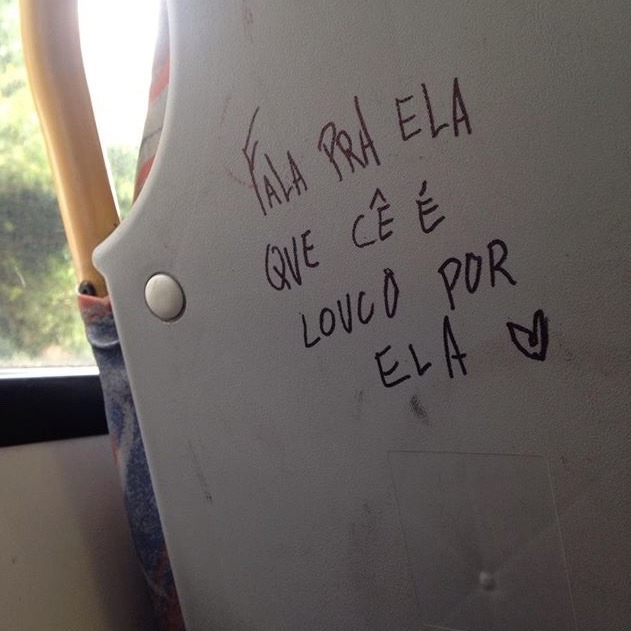 FALA PRA ELA
QUE CÊ É
LOUCO POR
ELA